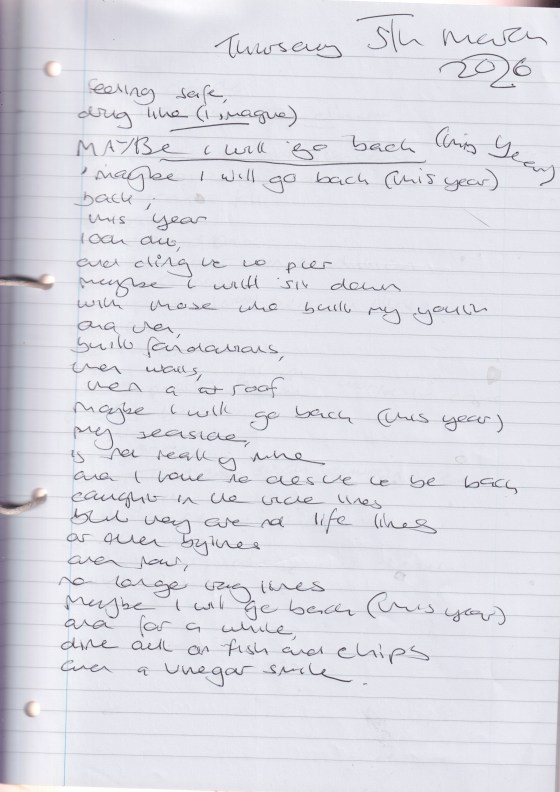 Thursday 5th March
2026
feeling safe,
drug like (I imagine)
MAYBE I will go back (this year)
, maybe I will go back (this year)
back,
this year
look out,
and cling to to pier
maybe I will sit down
with those who built my youth
and then,
build foundations,
then walls,
then a roof
maybe I will go back (this year)
my seaside,
is not really mine
and I have no desire to be back
caught in the lines
but they are not life lines
or even bylines
even now,
no longer lines
maybe I will go back (this year)
and for a while,
dine out on fish and chips
and a vinegar smile.